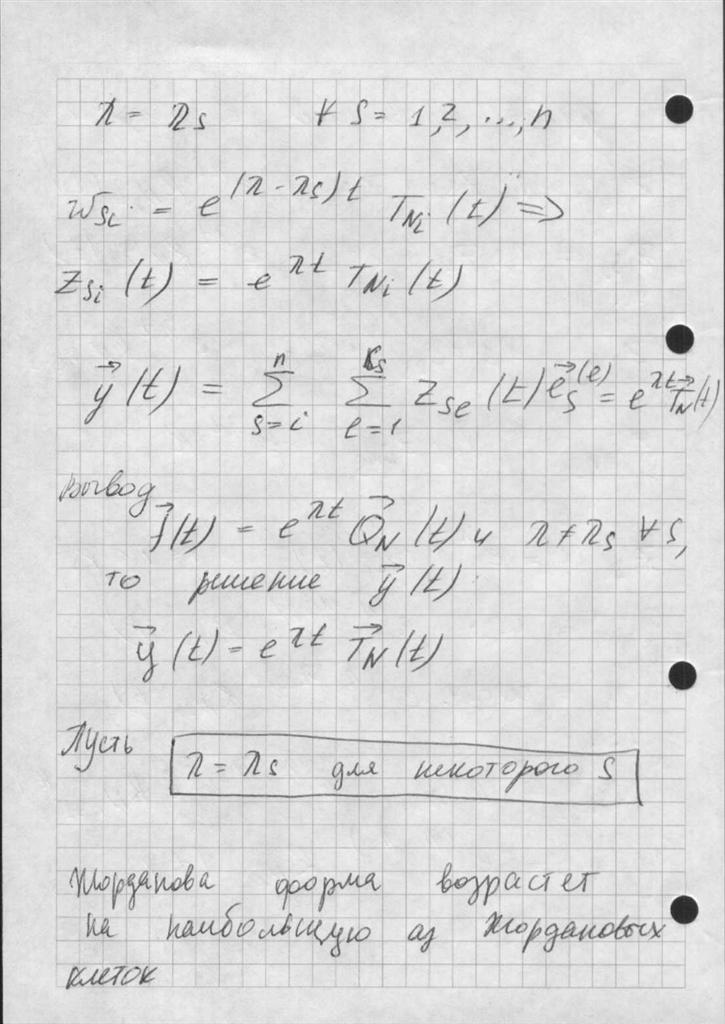 λ = λs ∀ S = 1,2, ..., n
w_si = e^(λ - λs)t T_Ni (t) ⇒
z_si (t) = e^λt T_Ni (t)
y⃗ (t) = Σ_{s=i}^{n} Σ_{e=1}^{ks} z_se (t) e⃗_s^(e) = e^λt T⃗_N (t)
Вывод
f⃗(t) = e^λt Q⃗_N (t) и λ ≠ λs ∀ S,
то решение y⃗ (t)
y⃗ (t) = e^λt T⃗_N (t)
Пусть λ = λs для некоторого S
Жорданова форма возрастет
на наибольшую из Жордановых
клеток